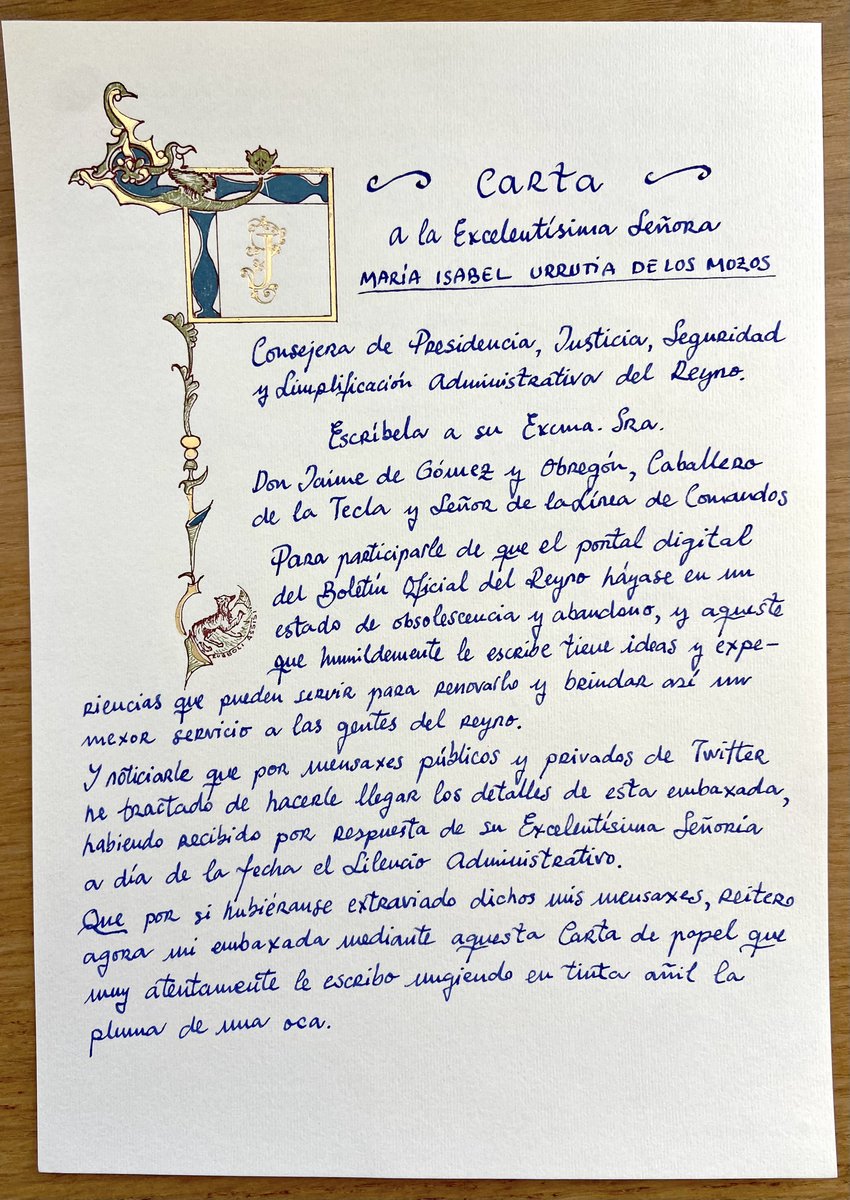 J
Carta
a la Excelentísima Señora
MARÍA ISABEL URRUTIA DE LOS MOZOS
Consejera de Presidencia, Justicia, Seguridad
y Simplificación Administrativa del Reyno.
Escríbela a su Excma. Sra.
Don Jaime de Gómez y Obregón, Caballero
de la Tecla y Señor de la Línea de Comandos
Para participarle de que el portal digital
del Boletín Oficial del Reyno háyase en un
estado de obsolescencia y abandono, y aqueste
que humildemente le escribe tiene ideas y expe-
riencias que pueden servir para renovarlo y brindar así un
mexor servicio a las gentes del reyno.
Y noticiarle que por mensaxes públicos y privados de Twitter
he tractado de hacerle llegar los detalles de esta embaxada,
habiendo recibido por respuesta de su Excelentísima Señoría
a día de la fecha el Silencio Administrativo.
Que por si hubiéranse extraviado dichos mis mensaxes, reitero
agora mi embaxada mediante aquesta Carta de papel que
muy atentamente le escribo ungiendo en tinta añil la
pluma de una oca.